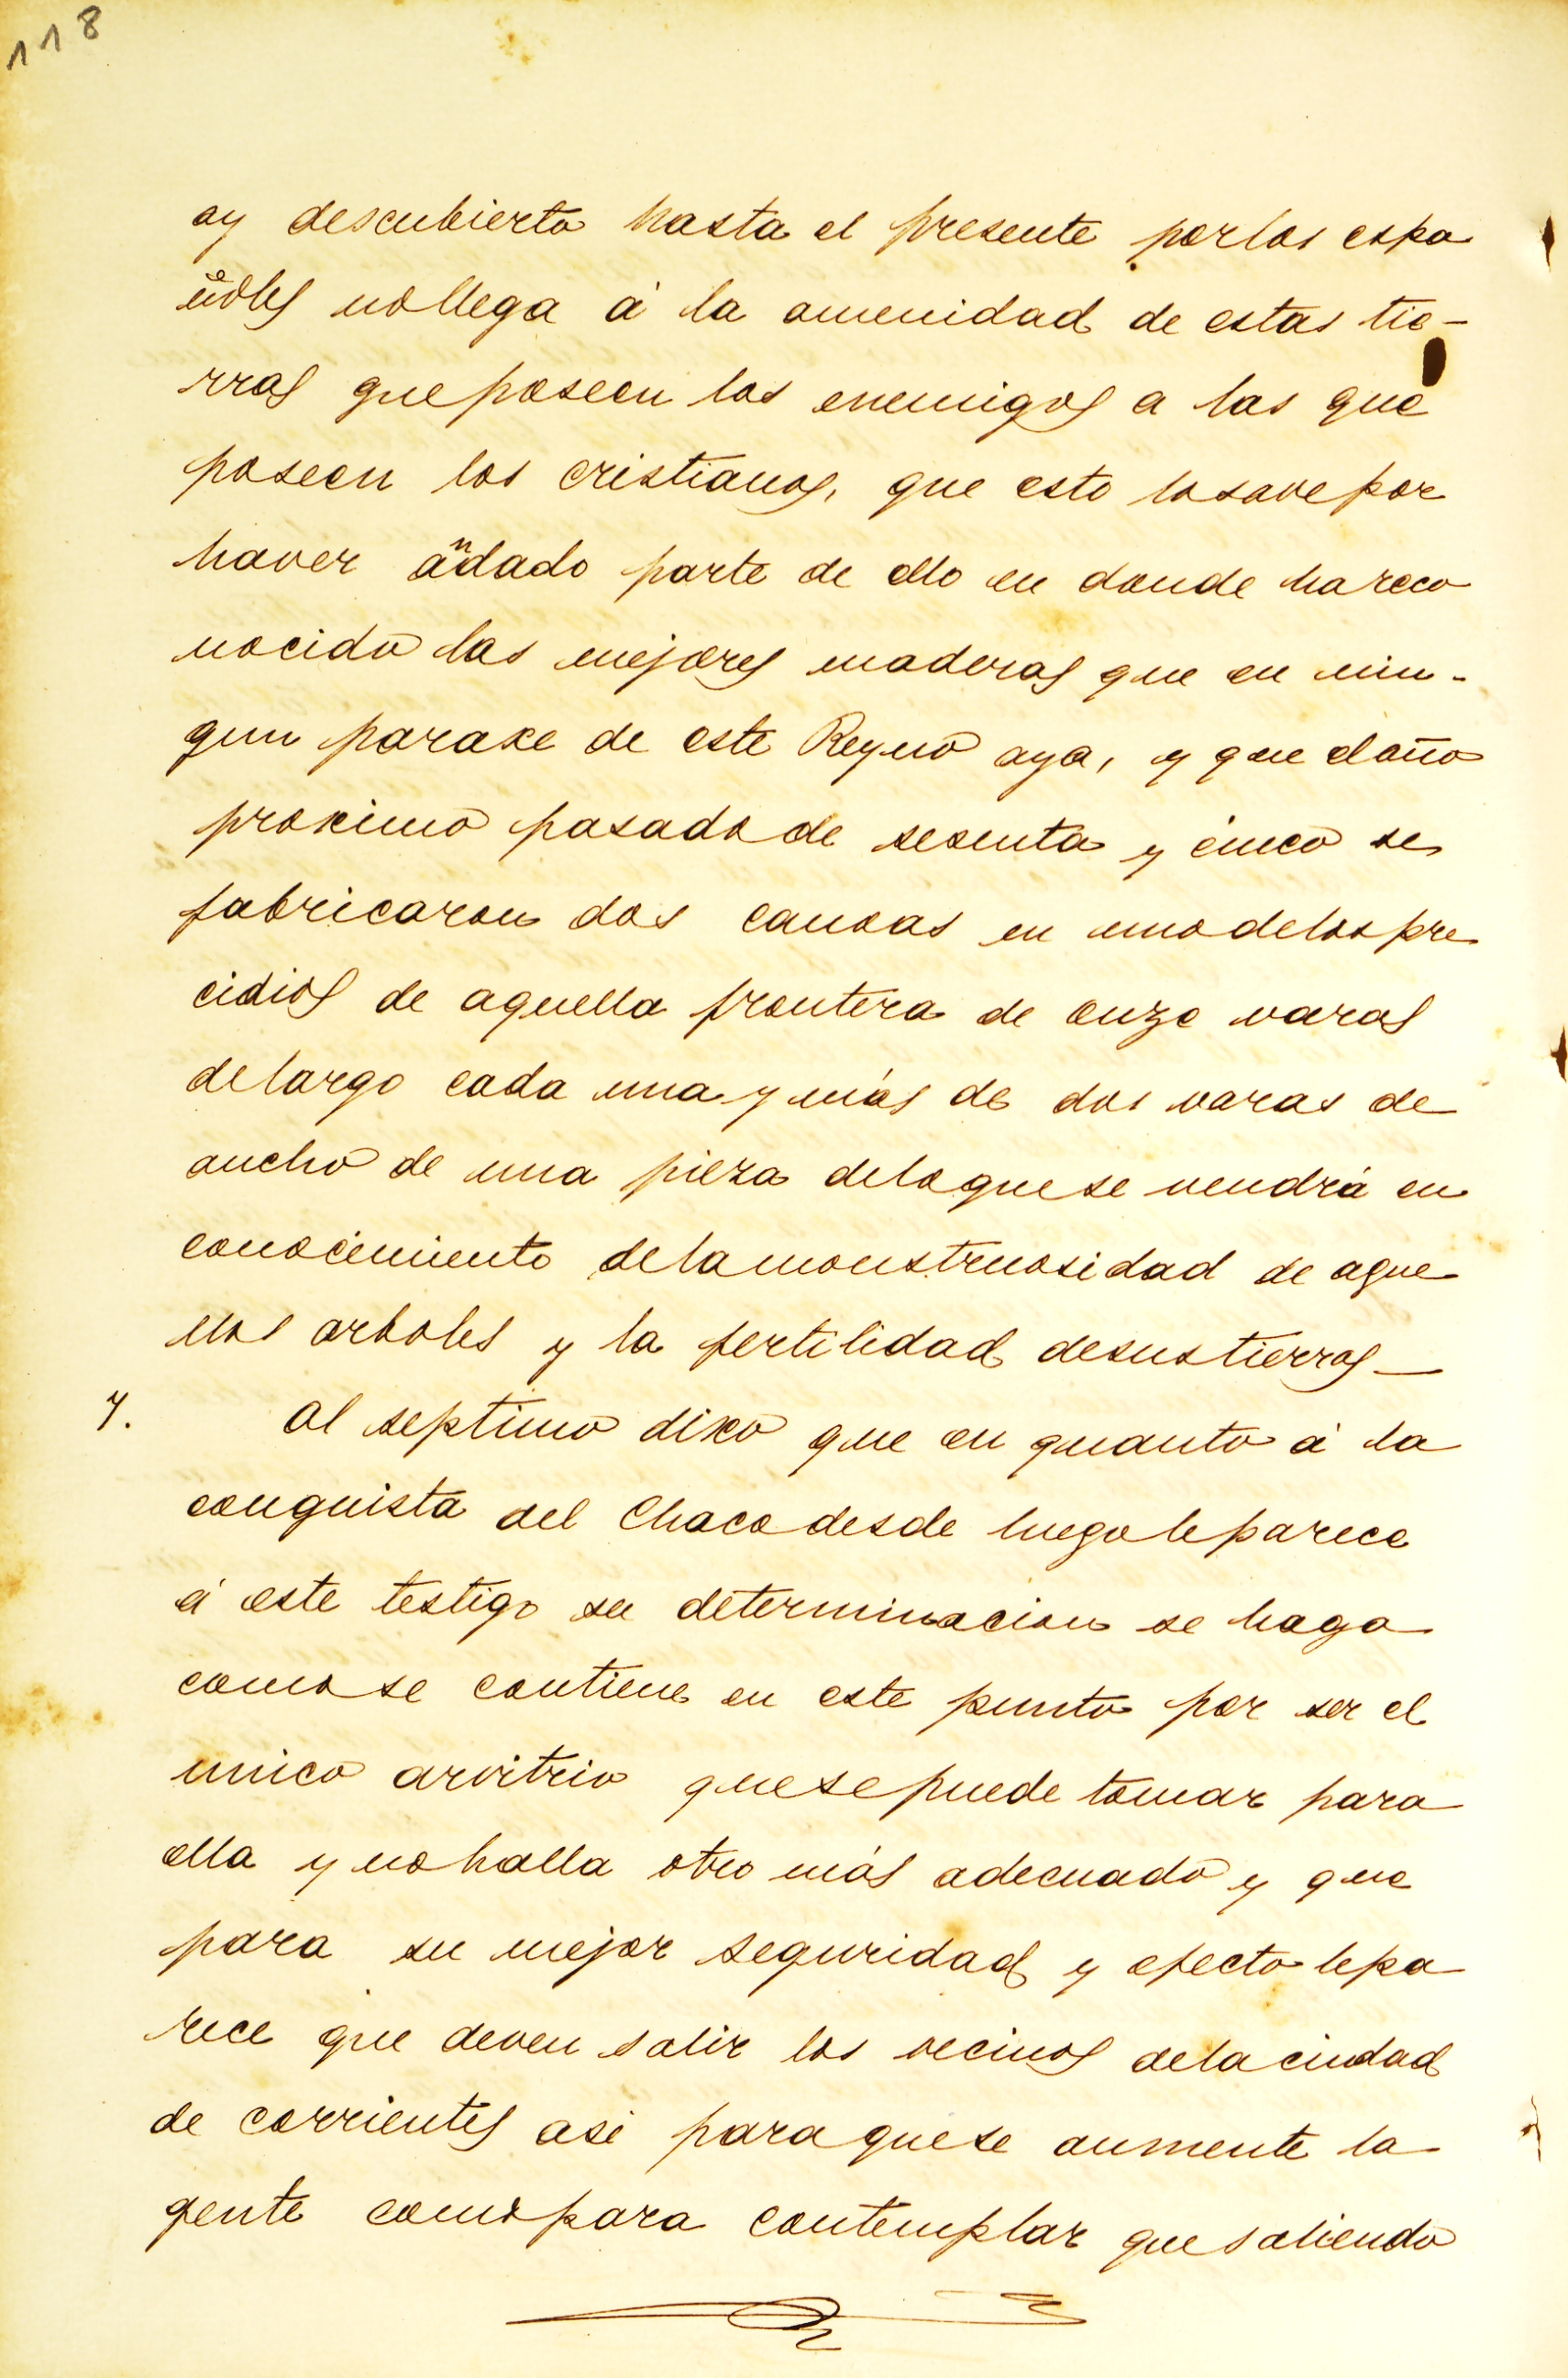 118
ay descubierto hasta el presente porlos espa
ñoles nollega á la amenidad de estas tie-
rras queposeen los enemigos a las que
poseen los cristianos, que esto losave por
haver andado parte de ello en donde hareco
nocido las mejores maderas que en nin-
gun paraxe de este Reyno aya, y que elaño
proximo pasado de sesenta y cinco se
fabricaron dos canoas en uno delos pre
cidios de aquella frontera de onze varas
delargo cada una y más de dos varas de
ancho de una pieza deloquese vendrá en
conocimiento delamonstruosidad de aque
llos arboles y la fertilidad desustierras—
7. Al septimo dixo que en quanto á la
conquista del Chaco desde luego leparece
á este testigo su determinacion se haga
comose contiene en este punto por ser el
unico arvitrio quesepuede tomar para
ella y nohalla otro más adecuado y que
para su mejor seguridad y efecto lepa
rece que deven salir los vecinos delaciudad
de corrientes asi paraquese aumente la
gente comopara contemplar quesaliendo